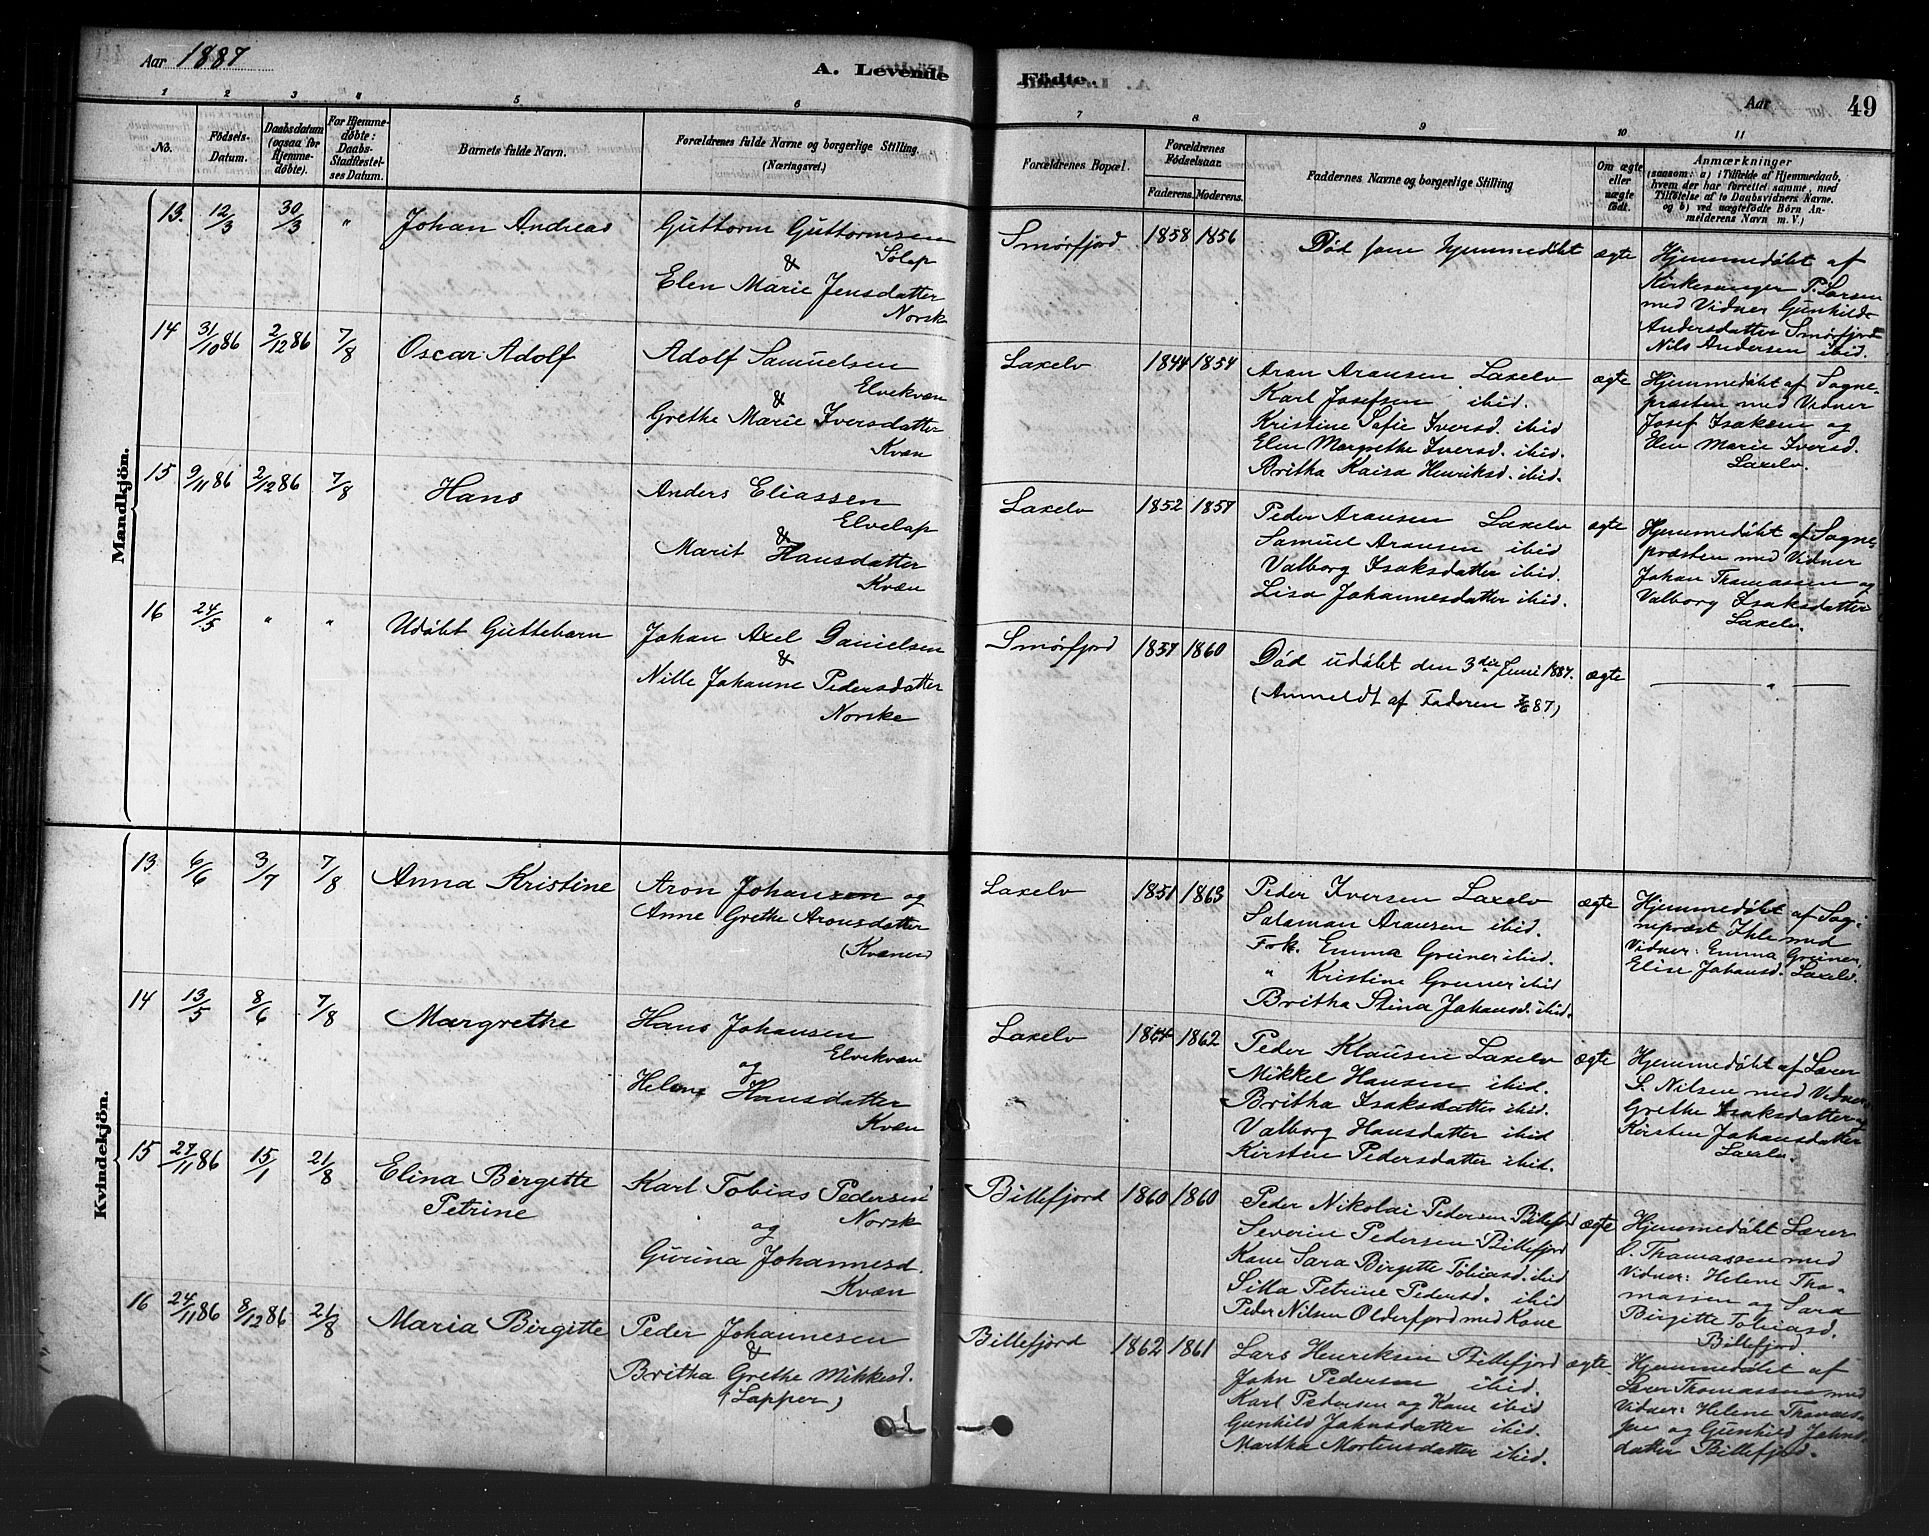 Aar 1887
A. Levende
Födte.
Aar
49
1
2
3
4
5
6
7
8
9
10
11
No.
Födsels-
Datum.
Daabsdatum
(ogsaa for
Hjemme-
döbte).
For Hjemme-
döbte:
Daabs-
Stadfæstel-
ses Datum.
Barnets fulde Navn.
Forældrenes fulde Navne og borgerlige Stilling.
(Næringsvei.)
Forældrenes Bopæl.
Forældrenes
Födselsaar.
Faderens.
Moderens.
Faddernes Navne og borgerlige Stilling
Om ægte
eller
uægte
födt.
Anmærkninger
(saasom: a) i Tilfælde af Hjemmedaab,
hvem der har forrettet samme, med
Tilföielse af to Daabsvidners Navne,
og b) ved uægtefödte Börn An-
melderens Navn m. V.)
Mandkjön.
13. 12/3 30/3 " Johan Andreas
Guttorm Guttormsen
Sölap
&
Elen Marie Jensdatter
Norsk
Smørfjord 1858 1856
Død som hjemmedøbt
ægte
Hjemmedøbt af
Kirkesanger P. Larsen
med Vidner Gunhild
Andersdatter Smørfjord
Nils Andersen ibid.
14 31/10 86 2/12 86 7/8 Oscar Adolf
Adolf Samuelsen
Elvekvæn
&
Grethe Marie Iversdatter
Kvæn
Laxelv 1844 1854
Aron Aronsen Laxelv
Karl Josefsen ibid.
Kristine Sofie Iversd. ibid
Elen Margrethe Iversd. ibid.
Britha Kaisa Henriksd. ibid.
ægte
Hjemmedøbt af Sogne-
præsten med Vidner
Josef Isaksen og
Elen Marie Iversd.
Laxelv.
15 9/11 86 2/12 86 7/8 Hans
Anders Eliassen
Elvelap
&
Marit Hansdatter
Kvæn
Laxelv 1852 1857
Peder Aronsen Laxelv
Samuel Aronsen ibid
Valborg Isaksdatter ibid.
Lisa Johannesdatter ibid.
ægte
Hjemmedøbt af Sogne-
præsten med Vidner
Johan Thomassen og
Valborg Isaksdatter
Laxelv.
16 24/5 " " Udøbt Guttebarn
Johan Axel Danielsen
&
Nille Johanne Pedersdatter
Norske
Smørfjord 1857 1860
Død udøbt den 3die Juni 1887.
(Anmeldt af Faderen 87)
ægte
"
Kvindekjön.
13 6/6 3/7 7/8 Anna Kristine
Aron Johansen og
Anne Grethe Aronsdatter
(Kvæner)
Laxelv 1851 1863
Peder Iversen Laxelv
Salamon Aronsen ibid.
Frk. Emma Greiner ibid.
" Kristine Greiner ibid
Britha Stina Johansd. ibid.
ægte
Hjemmedøbt af Sog-
nepræst Ihle med
Vidner: Emma Greiner,
Elise Johansd. Laxelv.
14 13/5 8/6 7/8 Margrethe
Hans Johansen
Elvekvæn
og
Helena Hansdatter
Kvæn
Laxelv 1862
Peder Klausen Laxelv
Mikkel Hansen ibid.
Britha Isaksdatter ibid.
Valborg Hansdatter ibid
Kirsten Pedersdatter ibid.
ægte
Hjemmedøbt af Lærer
S. Nilsen med Vidner
Grethe Isaksdatter og
Kirsten Johansdatter
Laxelv.
15 27/11 86 15/1 21/8 Elina Birgitte
Petrine
Karl Tobias Pedersen
Norsk
og
Gurina Johannesd.
Kvæn
Billefjord 1860 1860
Peder Nikolai Pedersen Billefjord
Severin Pedersen Billefjord
Kone Sara Birgitte Tobiasd. ibid
Silla Petrine Pedersd. ibid
Peder Nilsen Olderfjord med Kone
ægte
Hjemmedøbt Lærer
O. Thomassen med
Vidner: Helene Tho-
massen og Sara
Birgitte Tobiasd.
Billefjord.
16 24/11 86 8/12 86 21/8 Maria Birgitte
Peder Johannesen
&
Britha Grethe Mikkelsd.
(Lapper)
Billefjord 1862 1861
Lars Henriksen Billefjord
John Pedersen ibid.
Karl Pedersen og Kone ibid
Gunhild Johnsdatter ibid.
Martha Mortensdatter ibid.
ægte
Hjemmedøbt af
Lærer Thomassen med
Vidner: Helene Thomas-
sen og Gunhild Johns-
datter Billefjord.